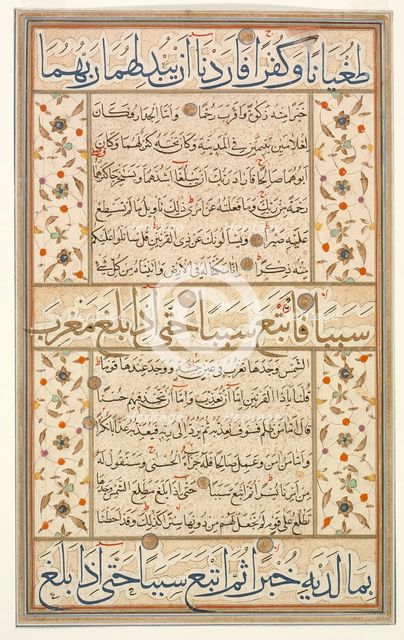 طُغْيَانًا وَكُفْرًا فَأَرَدْنَا أَنْ يُبْدِلَهُمَا رَبُّهُمَا
خَيْرًا مِنْهُ زَكَوةً وَأَقْرَبَ رُحْمًا وَأَمَّا الْجِدَارُ فَكَانَ
لِغُلَامَيْنِ يَتِيمَيْنِ فِي الْمَدِينَةِ وَكَانَ تَحْتَهُ كَنْزٌ لَهُمَا وَكَانَ
أَبُوهُمَا صَالِحًا فَأَرَادَ رَبُّكَ أَنْ يَبْلُغَا أَشُدَّهُمَا وَيَسْتَخْرِجَا كَنْزَهُمَا
رَحْمَةً مِنْ رَبِّكَ وَمَا فَعَلْتُهُ عَنْ أَمْرِي ذَلِكَ تَأْوِيلُ مَا لَمْ تَسْطِعْ
عَلَيْهِ صَبْرًا وَيَسْأَلُونَكَ عَنْ ذِي الْقَرْنَيْنِ قُلْ سَأَتْلُو عَلَيْكُمْ
مِنْهُ ذِكْرًا إِنَّا مَكَّنَّا لَهُ فِي الْأَرْضِ وَآتَيْنَاهُ مِنْ كُلِّ شَيْءٍ
سَبَبًا فَأَتْبَعَ سَبَبًا حَتَّى إِذَا بَلَغَ مَغْرِبَ
الشَّمْسِ وَجَدَهَا تَغْرُبُ فِي عَيْنٍ حَمِئَةٍ وَوَجَدَ عِنْدَهَا قَوْمًا
قُلْنَا يَا ذَا الْقَرْنَيْنِ إِمَّا أَنْ تُعَذِّبَ وَإِمَّا أَنْ تَتَّخِذَ فِيهِمْ حُسْنًا
قَالَ أَمَّا مَنْ ظَلَمَ فَسَوْفَ نُعَذِّبُهُ ثُمَّ يُرَدُّ إِلَى رَبِّهِ فَيُعَذِّبُهُ عَذَابًا نُكْرًا
وَأَمَّا مَنْ آمَنَ وَعَمِلَ صَالِحًا فَلَهُ جَزَاءً الْحُسْنَى وَسَنَقُولُ لَهُ
مِنْ أَمْرِنَا يُسْرًا ثُمَّ أَتْبَعَ سَبَبًا حَتَّى إِذَا بَلَغَ مَطْلِعَ الشَّمْسِ وَجَدَهَا
تَطْلُعُ عَلَى قَوْمٍ لَمْ نَجْعَلْ لَهُمْ مِنْ دُونِهَا سِتْرًا كَذَلِكَ وَقَدْ أَحَطْنَا
بِمَا لَدَيْهِ خُبْرًا ثُمَّ أَتْبَعَ سَبَبًا حَتَّى إِذَا بَلَغَ